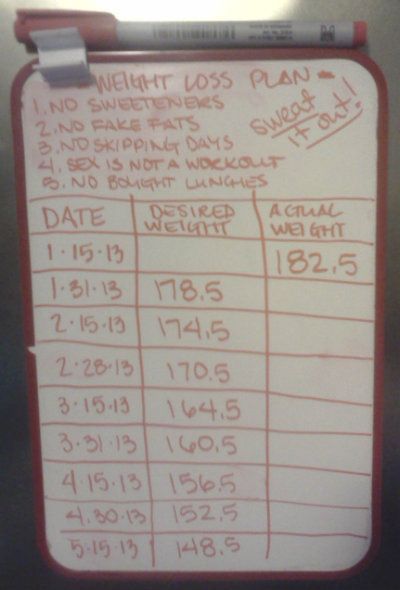 - WEIGHT LOSS PLAN -
1. NO SWEETENERS
2. NO FAKE FATS
3. NO SKIPPING DAYS
4. SEX IS NOT A WORKOUT
5. NO BOUGHT LUNCHES
sweat
it out!
DATE DESIRED WEIGHT ACTUAL WEIGHT
1·15·13 182.5
1·31·13 178.5
2·15·13 174.5
2·28·13 170.5
3·15·13 164.5
3·31·13 160.5
4·15·13 156.5
4·30·13 152.5
5·15·13 148.5